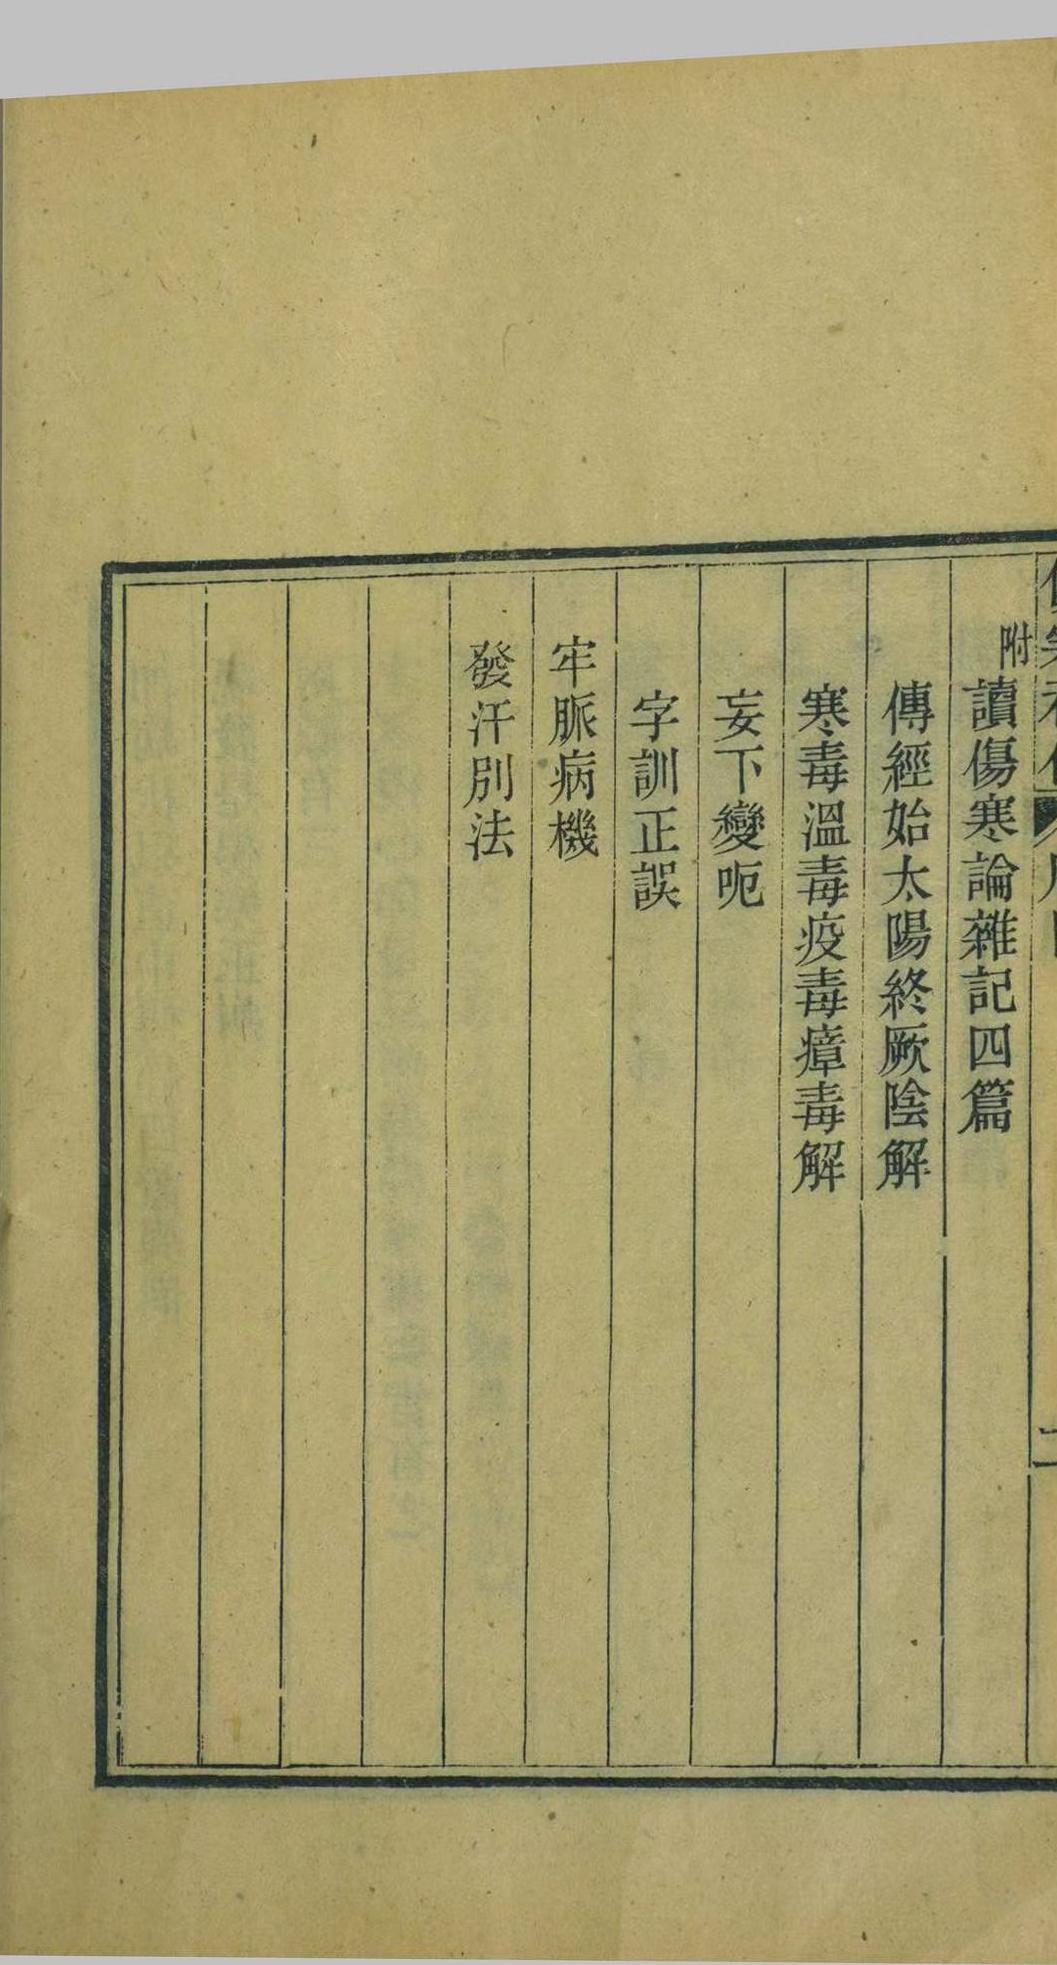 附讀傷寒論雜記四篇
傳經始太陽終厥陰解
寒毒溫毒疫毒瘴毒解
妄下變呃
字訓正誤
牢脈病機
發汗別法